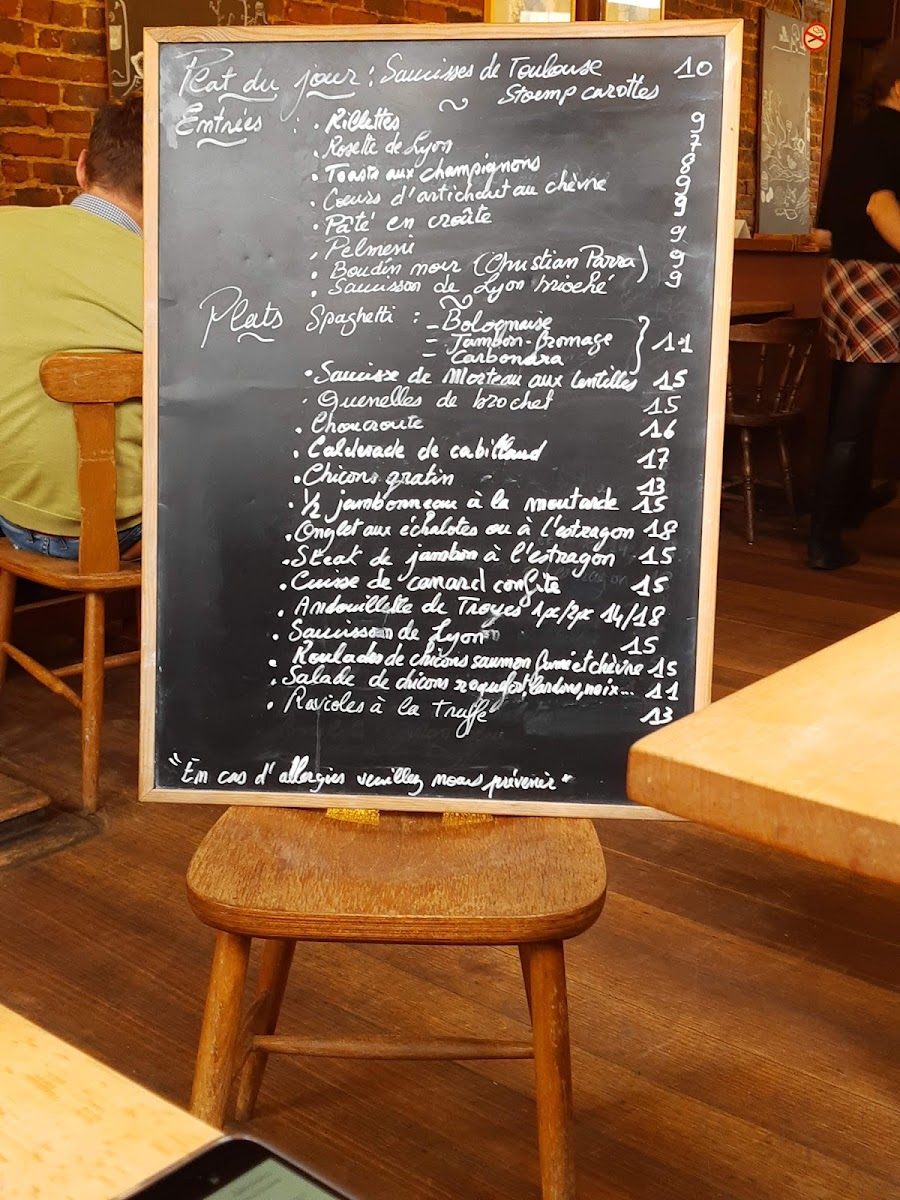 Plat du jour : Saucisses de Toulouse 10
Stoemp carottes
~
Entrées : . Rillettes 9
. Rosette de Lyon 7
. Toasts aux champignons 8
. Coeurs d'artichaut au chèvre 9
. Pâté en croûte 9
. Pelmeni 9
. Boudin noir (Christian Parra) 9
. Saucisson de Lyon brioché 9
~
Plats Spaghetti : - Bolognaise
- Jambon-fromage } 11
- Carbonara
. Saucisse de Morteau aux lentilles 15
. Quenelles de brochet 15
. Choucroute 16
. Calderade de cabillaud 17
. Chicons gratin 13
. 1/2 jambonneau à la moutarde 15
. Onglet aux échalotes ou à l'estragon 18
. Steak de jambon à l'estragon 15
. Cuisse de canard confite 15
. Andouillette de Troyes 1px/2px 14/18
. Saucisson de Lyon 15
. Roulades de chicons saumon fumé et chèvre 15
. Salade de chicons roquefort, lardons, noix... 11
. Ravioles à la truffe 13
"En cas d'allergies veuillez nous prévenir"